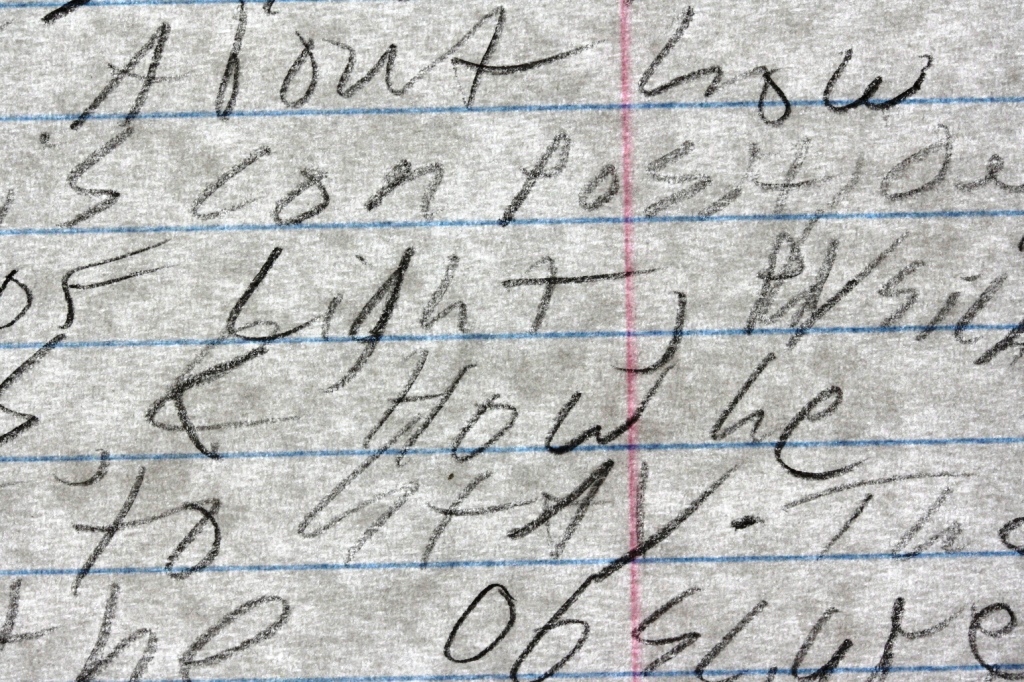 About how
is composity, De
of Light, Physic
& How he
to stay. The
the Obscure